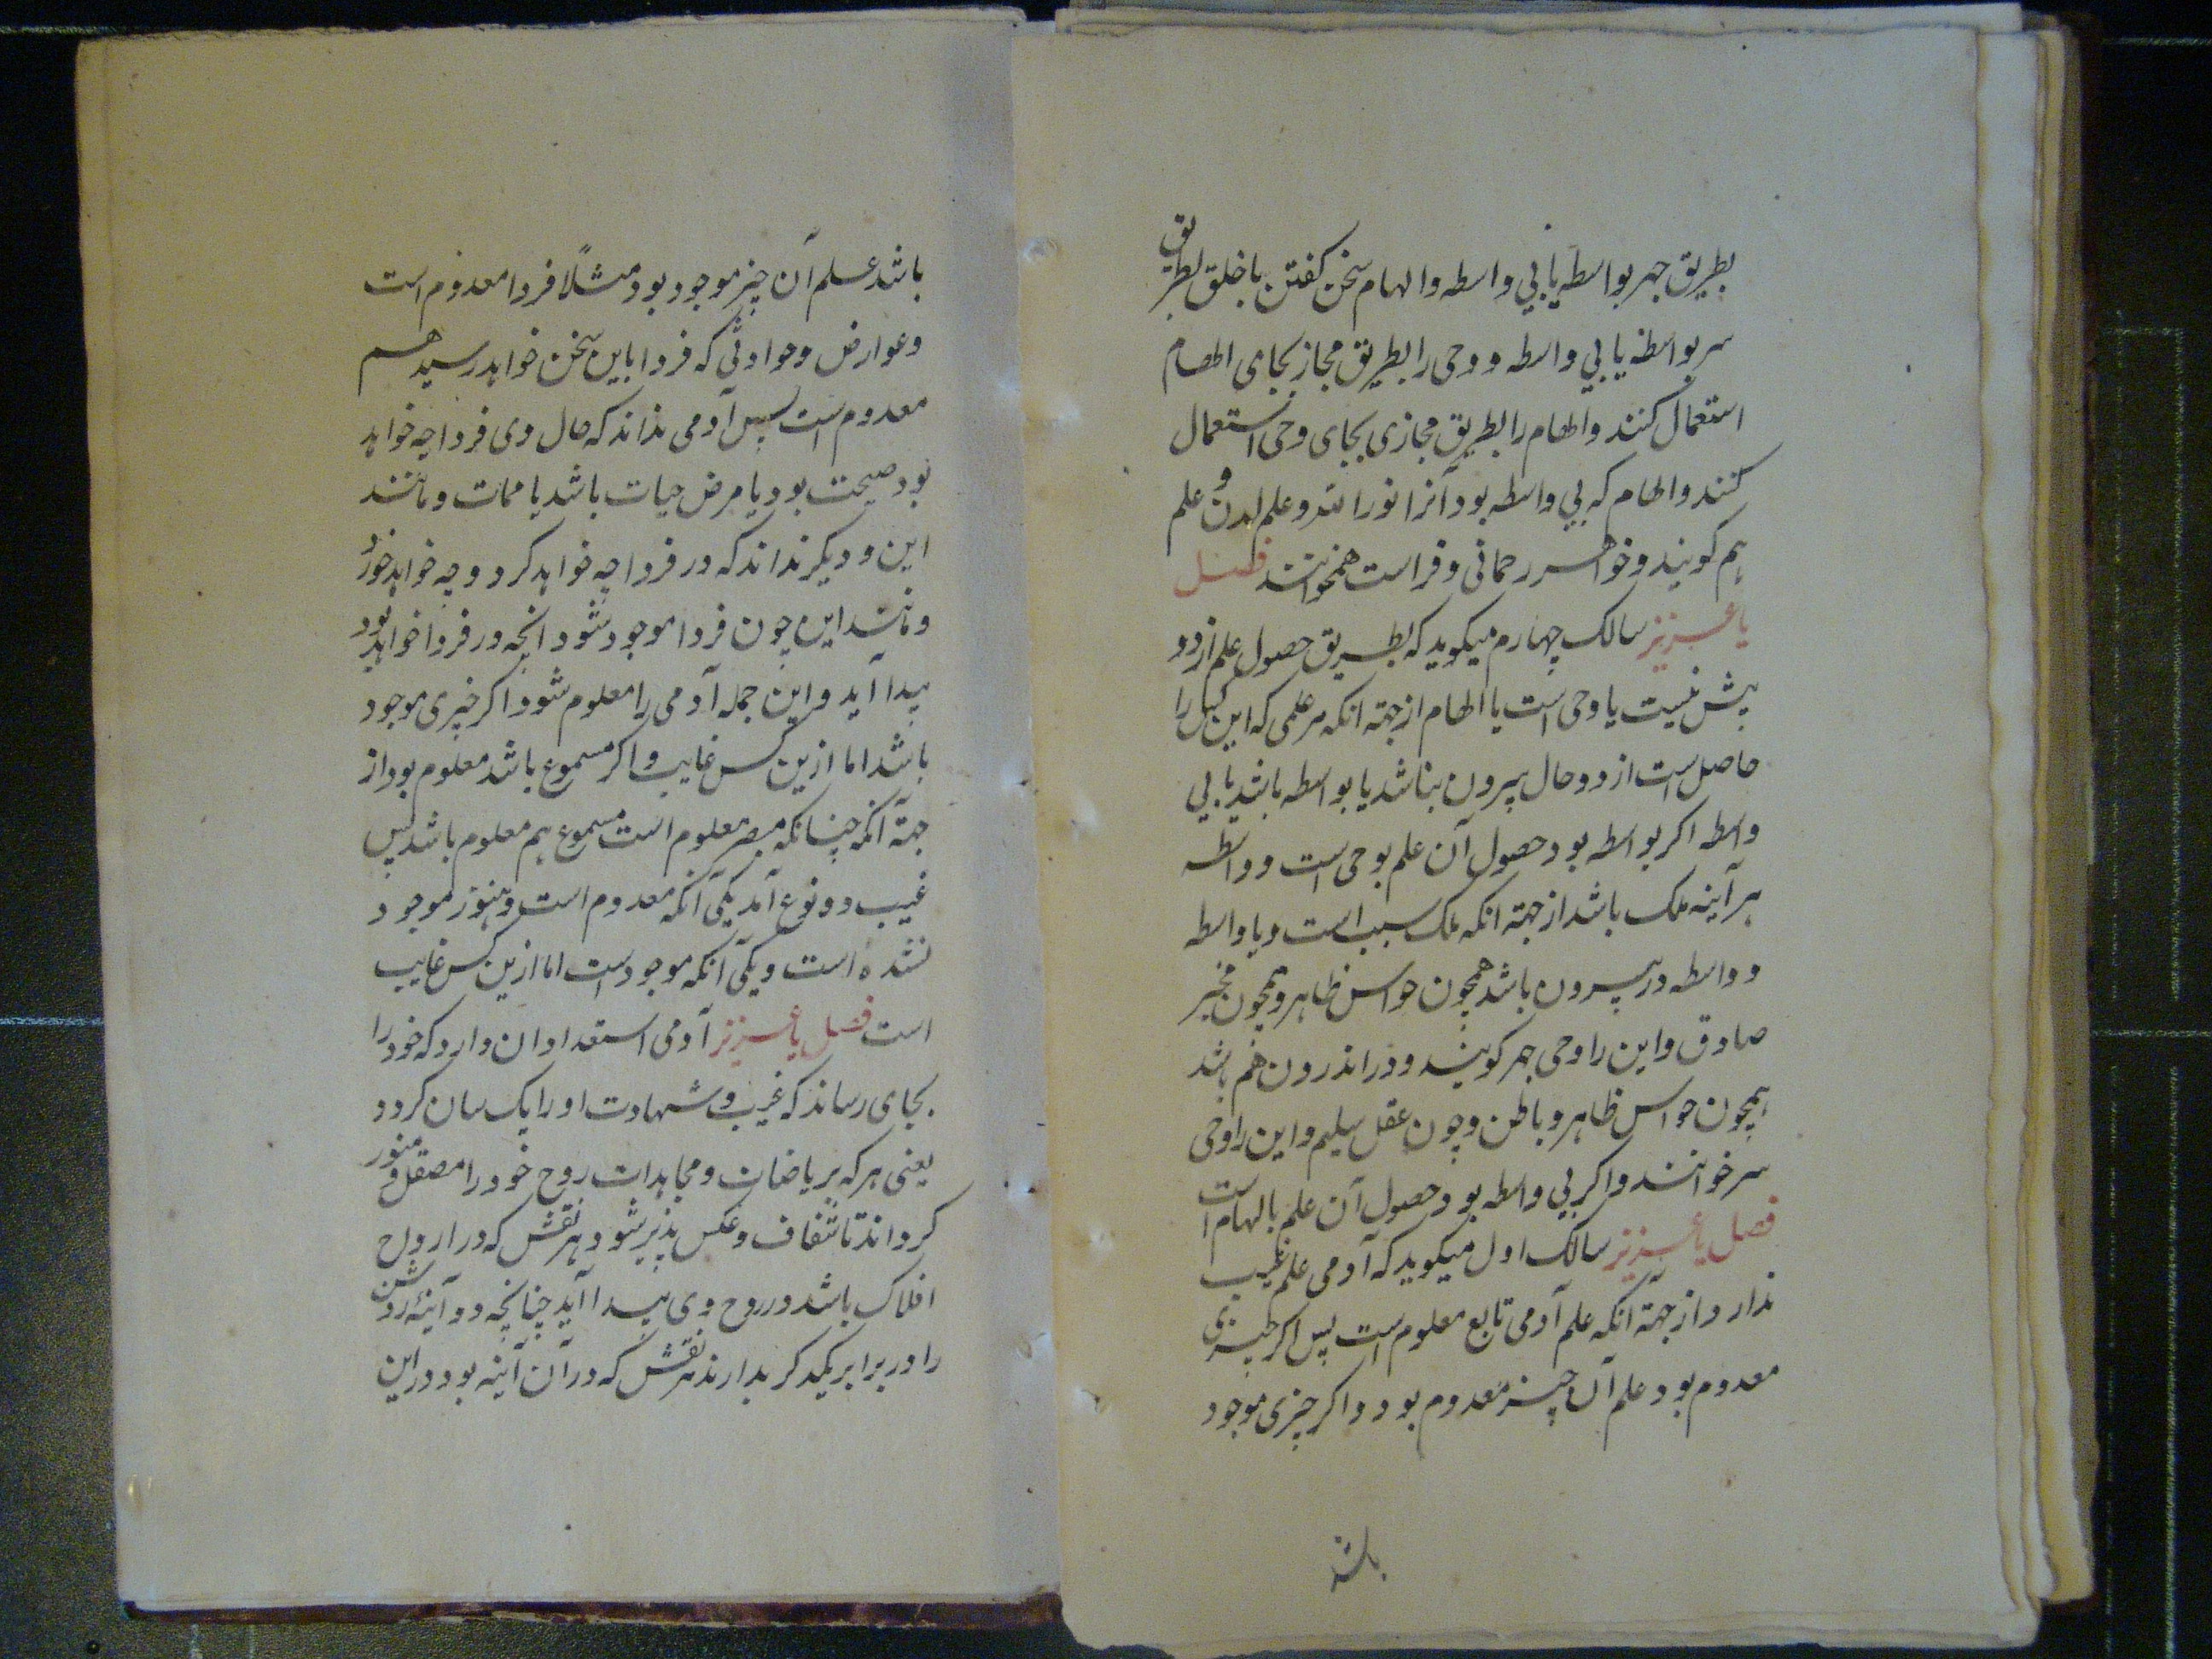 بطریق جهر بواسطه یا بی واسطه و الهام سخن کفتن با خلق بطریق
سر بواسطه یا بی واسطه و وحی را بطریق مجاز بجای الهام
استعمال کنند و الهام را بطریق مجازی بجای وحی استعمال
کنند و الهام که بی واسطه بود آنرا نور الله و علم لدن و علم
هم کویند و خواطر رحمانی و فراست هم خوانند فصل
یا عزیز سالک چهارم میکوید که بطریق حصول علم از دو
بیش نیست یا وحی است یا الهام از جهة انکه هر علمی که این کس را
حاصل است از دو حال بیرون نباشد یا بواسطه باشد یا بی
واسطه اکر بواسطه بود حصول آن علم بوحی است و واسطه
هر آینه ملک باشد از جهة انکه ملک سبب است و یا واسطه
و واسطه در بیرون باشد همچون حواس ظاهر و همچون مخبر
صادق و این را وحی جهر کویند و در اندرون هم باشد
همچون حواس ظاهر و باطن و چون عقل سلیم و این را وحی
سر خوانند و اکر بی واسطه بود حصول آن علم بالهام است
فصل یا عزیز سالک اول میکوید که آدمی علم غیب
ندارد از جهة آنکه علم آدمی تابع معلوم است پس اکر چیزی
معدوم بود علم آن چیز معدوم بود و اکر چیزی موجود
باشد
باشد علم آن چیز موجود بود مثلاً فردا معدوم است
و عوارض و حوادثی که فردا باین سخن خواهد رسید هم
معدوم است پس آدمی نداند که حال وی فردا چه خواهد
بود صحت بود یا مرض حیات باشد یا ممات و مانند
این و دیکر نداند که در فردا چه خواهد کرد و چه خواهد خورد
و مانند این چون فردا موجود شود انچه در فردا خواهد بود
پیدا آید و این جمله آدمی را معلوم شود اکر چیزی موجود
باشد اما ازین کس غایب و اکر مسموع باشد معلوم بود از
جهة آنکه چنانکه مبصر معلوم است مسموع هم معلوم باشد پس
غیب دو نوع آمد یکی آنکه معدوم است و هنوز موجود
نشده است و یکی آنکه موجود است اما ازین کس غایب
است فصل یا عزیز آدمی استعداد ان دارد که خود را
بجای رساند که غیب و شهادت او را یک سان کردد
یعنی هر که بریاضات و مجاهدات روح خود را مصقل و منور
کرداند تا شفاف و عکس پذیر شود هر نقش که در ارواح
افلاک باشد در روح وی پیدا آید چنانچه دو آینهٔ روشن
را در برابر یکدکر بدارند هر نقش که در آن آینه بود در این